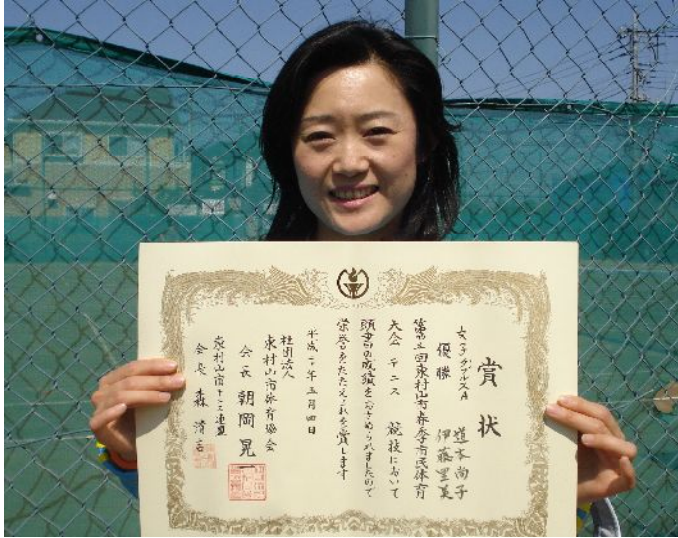 賞状
女子ダブルスA
優勝
道本尚子
伊藤里美
回東村山市春季市民体育
大会 テニス 競技において
頭書の成績をおさめられましたので
栄誉をたたえこれを賞します
平成二十年五月四日
社団法人
東村山市体育協会
会長 朝岡晃
東村山市テニス連盟
会長 森